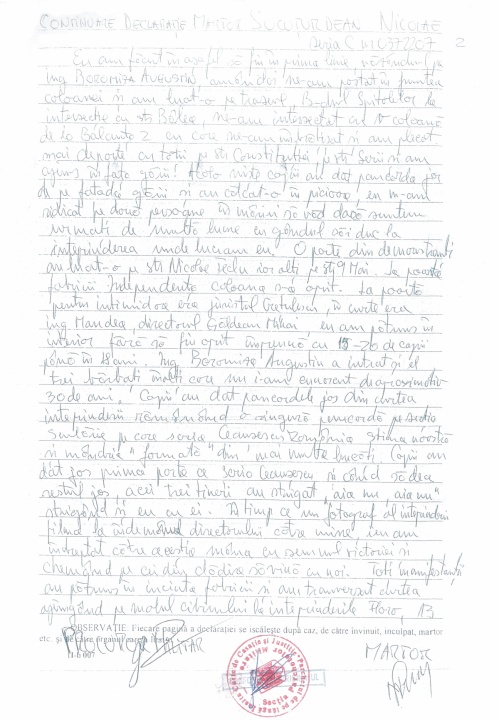 CONTINUARE DECLARAȚIE MARTOR SUCIU TURDEAN NICOLAE
2
Eu am făcut în așa fel să fiu în prima linie, văzându-l pe
ing BOROMIZA AUGUSTIN amândoi ne-am postat în fruntea
coloanei și am luat-o pe traseul B-dul Spitalelor la
intersecție cu str Bâlea, ne-am intersectat cu o coloană
de la Balanța 2 cu care ne-am îmbrățișat și am plecat
mai departe cu toții pe str Constituției pe str Gării și am
ajuns în fața gării! Acolo niște copii au dat pancarda jos
de pe fațada gării și au călcat-o în picioare eu m-am
ridicat pe două persoane în mâini să văd dacă suntem
urmați de multă lume cu gândul să-i duc la
întreprinderea unde lucram eu. O parte din demonstranți
au luat-o pe str Nicolae Teclu iar alți pe str 9 Mai. La poarta
fabricii Independența coloana s-a oprit. La poartă
pentru intimidare era juristul Cretulescu, în curte era
ing Mandea, directorul Grădean Mihai eu am pătruns în
interior fără să fiu oprit împreună cu 15-20 de copii
până în 18 ani. Ing. Boromiza Augustin a intrat și el
trei bărbați înalți care nu i-am cunoscut de aproximativ
30 de ani. Copii au dat pancardele jos din curtea
întreprinderii rămânând o singură pancardă pe stația
sanitară pe care scria Ceaușescu România stima noastră
și mândria" formată" din" mai multe bucăți. Copii au
dat jos prima parte ce scria Ceaușescu și când să dea
restul jos acei trei tineri au strigat "aia nu, aia nu"
strigând și eu cu ei. În timp ce un fotograf al întreprinderii
filma la îndemâna directorului către mine eu am
îndreptat către acesta mâna cu semnul victoriei și
chemând pe cei din clădire să vină cu noi. Toți manifestanții
au pătruns în incinta fabricii și am traversat curtea
ajungând pe malul cibinului la întreprinderile Flaro, 13
OBSERVAȚIE. Fiecare pagină a declarației se iscălește după caz, de către învinuit, inculpat, martor
etc. și de către organul
PROCUROR MILITAR
MARTOR